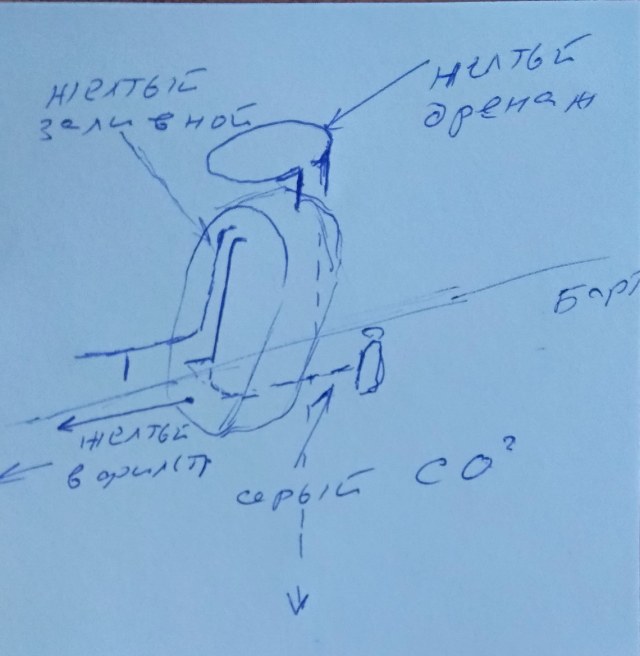 желтый
заливной
желтый
дренаж
Борт
желтый
в фильтр
серый CO²